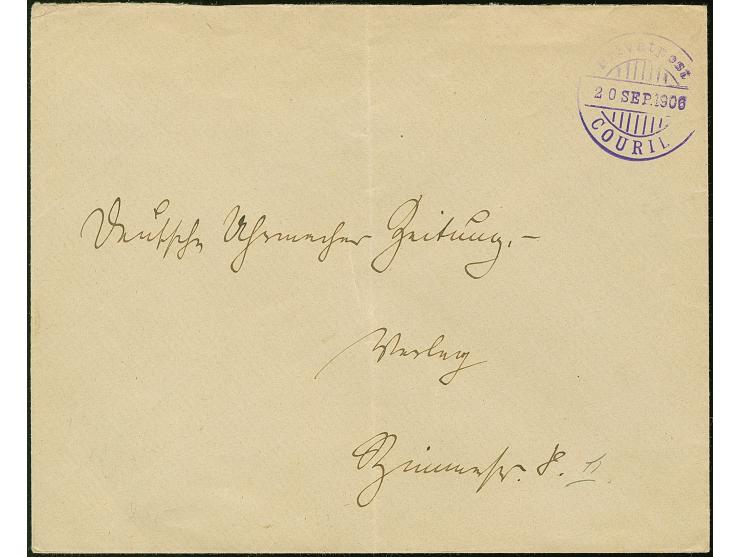 Privatpost
20 SEP. 1906
COURIL
Deutsche Uhrmacher Zeitung.-
Verlag
Zimmerstr. 8.